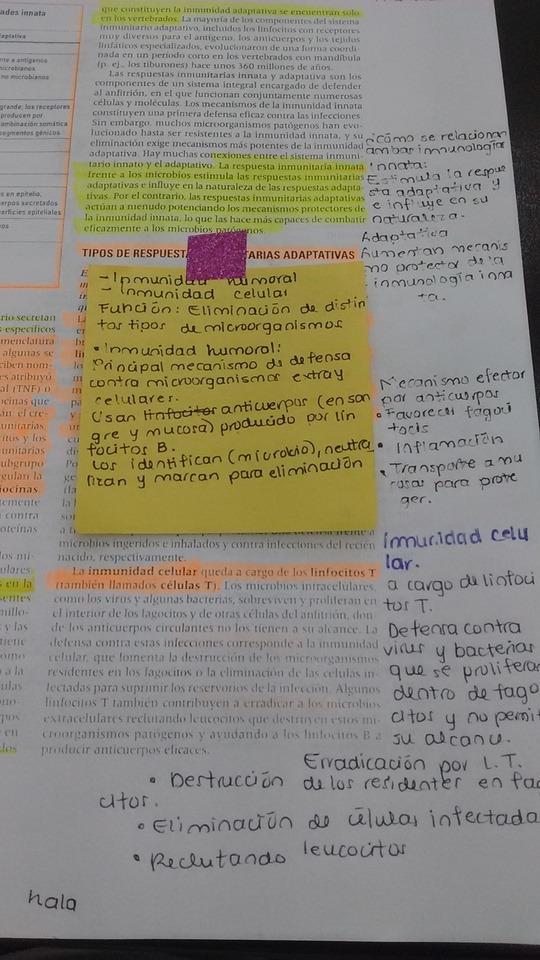 ades innata
aptativa
nte a antígenos
microbianos
no microbianos
grande; los receptores
producen por
ombinación somática
segmentos génicos
s en epitelio,
rpos secretados
erficies epiteliales
rio secretan
s específicos
menclatura
algunas se
ciben nom-
es atribuyó
al (TNF) o
ocinas que
án: el cre-
unitarias
citos y los
unitarias
subgrupo
gulan la
iocinas.
temente
contra
oteínas
los mi-
ulares
s en la
sentes
millo-
y las
tiene
omo
a la
ulas
ono-
pos
en
dos
que constituyen la inmunidad adaptativa se encuentran solo
en los vertebrados. La mayoría de los componentes del sistema
inmunitario adaptativo, incluidos los linfocitos con receptores
muy diversos para el antígeno, los anticuerpos y los tejidos
linfáticos especializados, evolucionaron de una forma coordi-
nada en un período corto en los vertebrados con mandíbula
(p. ej., los tiburones) hace unos 360 millones de años.
Las respuestas inmunitarias innata y adaptativa son los
componentes de un sistema integrado encargado de defender
al anfitrión, en el que funcionan conjuntamente numerosas
células y moléculas. Los mecanismos de la inmunidad innata
constituyen una primera defensa eficaz contra las infecciones.
Sin embargo, muchos microorganismos patógenos han evo-
lucionado hasta ser resistentes a la inmunidad innata, y su
eliminación exige mecanismos más potentes de la inmunidad
adaptativa. Hay muchas conexiones entre el sistema inmuni-
tario innato y el adaptativo. La respuesta inmunitaria innata
frente a los microbios estimula las respuestas inmunitarias
adaptativas e influye en la naturaleza de las respuestas adapta-
tivas. Por el contrario, las respuestas inmunitarias adaptativas
actúan a menudo potenciando los mecanismos protectores de
la inmunidad innata, lo que las hace más capaces de combatir
eficazmente a los microbios patógenos.
TIPOS DE RESPUEST TARIAS ADAPTATIVAS
- Inmunidad humoral
- Inmunidad celular
Función: Eliminación de distin
tos tipos de microorganismos
• Inmunidad humoral:
Principal mecanismo de defensa
contra microorganismos extray
celulares.
Usan linfocitos anticuerpos (en san
gre y mucosa) producido por lin
focitos B.
Los identifican (microbio), neutra
lizan y marcan para eliminación
microbios ingeridos e inhalados y contra infecciones del recién
nacido, respectivamente.
La inmunidad celular queda a cargo de los linfocitos T
(también llamados células T). Los microbios intracelulares,
como los virus y algunas bacterias, sobreviven y proliferan en
el interior de los fagocitos y de otras células del anfitrión, don-
de los anticuerpos circulantes no los tienen a su alcance. La
defensa contra estas infecciones corresponde a la inmunidad
celular, que fomenta la destrucción de los microorganismos
residentes en los fagocitos o la eliminación de las células in-
fectadas para suprimir los reservorios de la infección. Algunos
linfocitos T también contribuyen a erradicar a los microbios
extracelulares reclutando leucocitos que destruyen estos mi-
croorganismos patógenos y ayudando a los linfocitos B a
producir anticuerpos eficaces.
¿Cómo se relacionan
ambas inmunologías
Innata:
Estimula la respue
sta adaptativa y
e influye en su
naturaleza.
Adaptativa
Aumentan mecanis
mo protector de la
inmunología inna
ta.
Mecanismo efector
por anticuerpos
• Favorecer fagoci
tocis
• Inflamación
• Transporte a mu
cosas para prote
ger.
Inmunidad celu
lar.
a cargo de linfoci
tos T.
Defensa contra
virus y bacterias
que se prolifera
dentro de fago
citos y no permit
su alcance.
Erradicación por L.T.
• Destrucción de los residentes en fag
citos.
• Eliminación de células infectada
• Reclutando leucocitos
hala